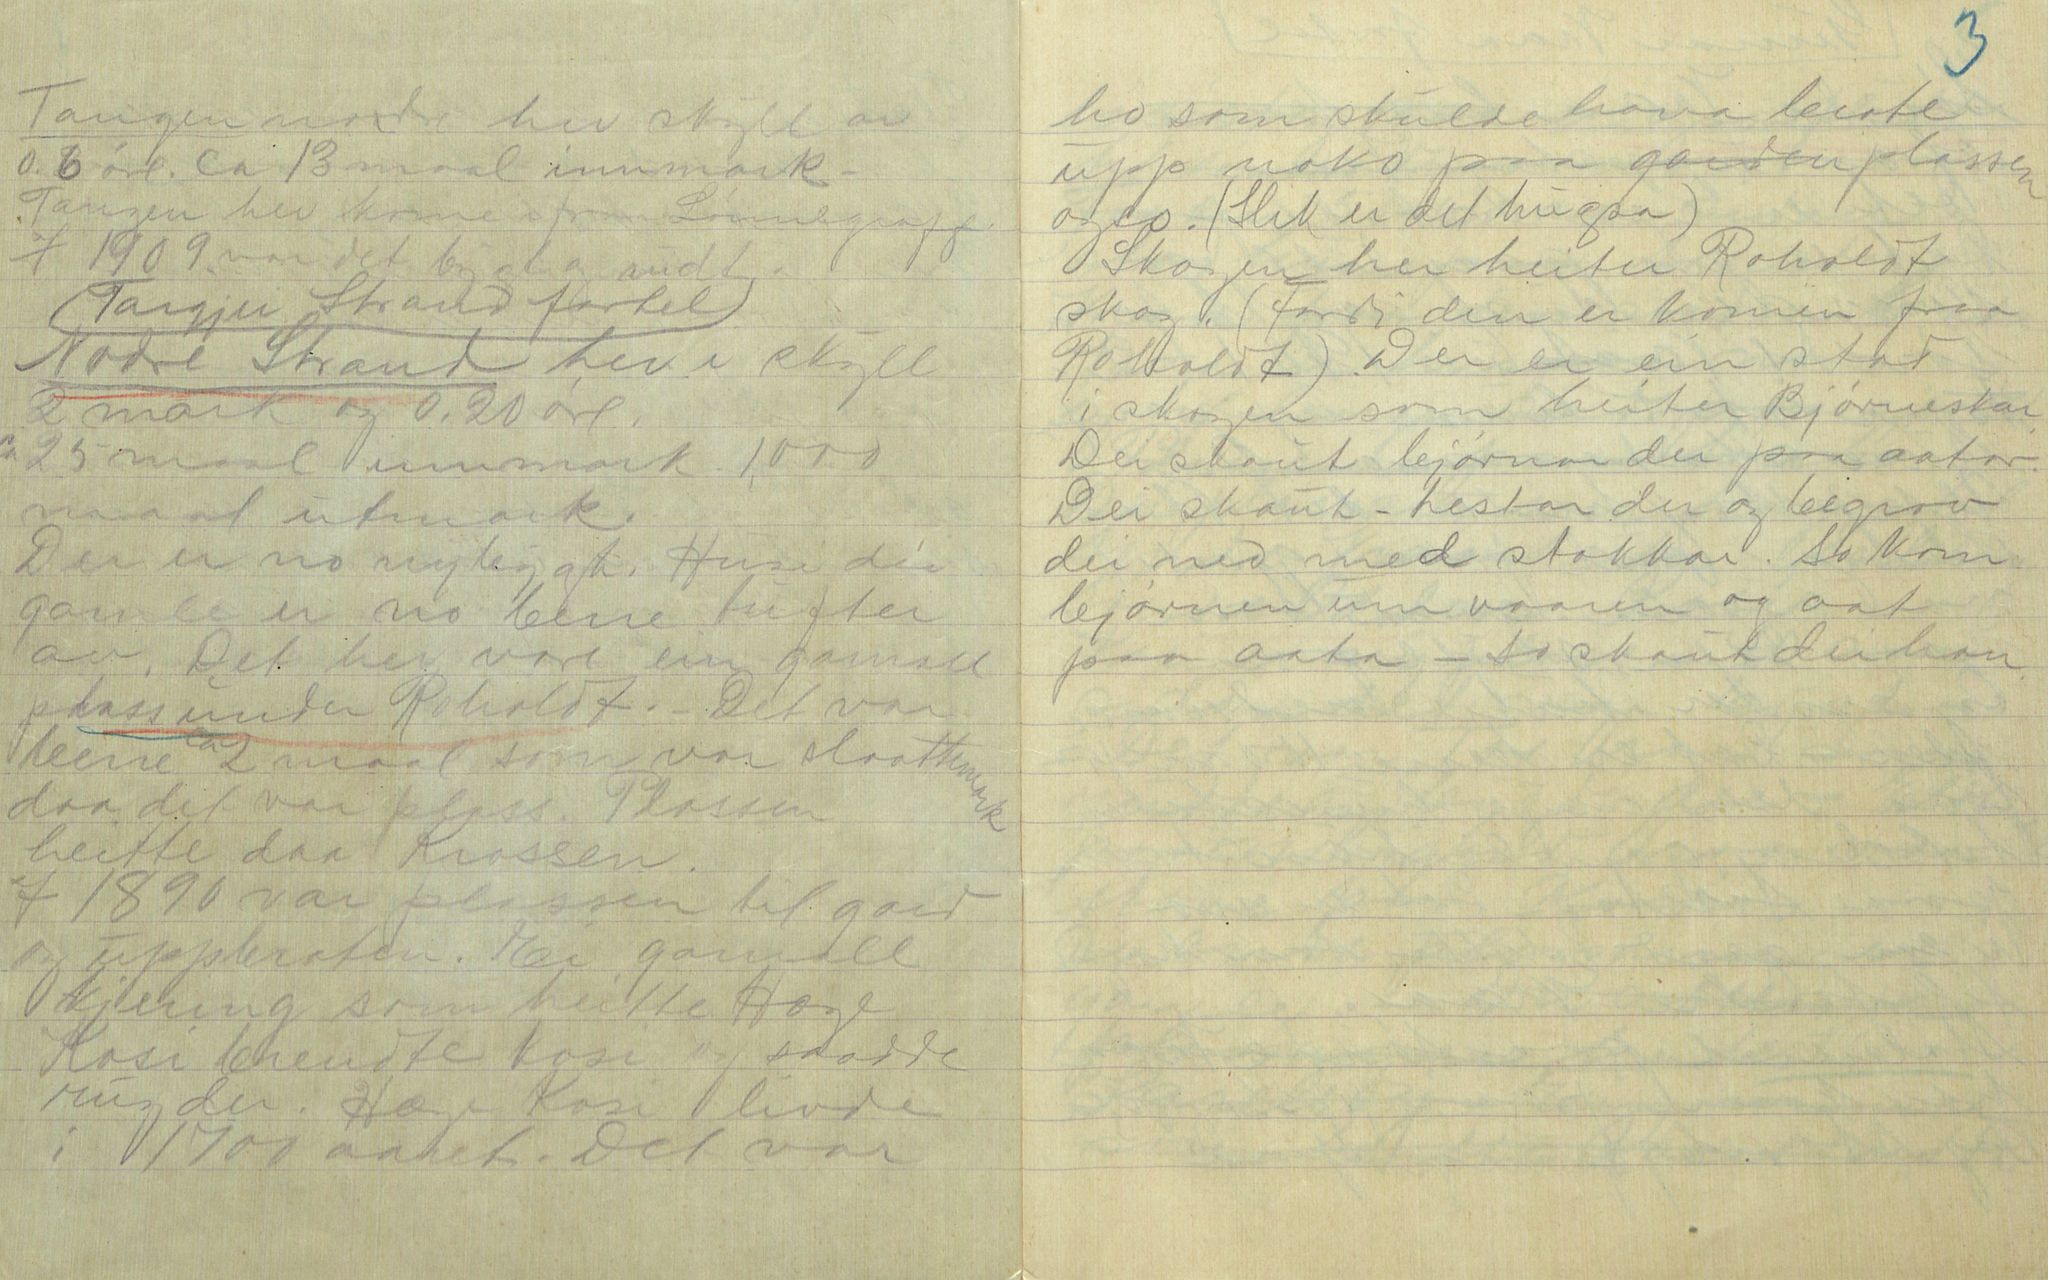 Tangen nordre hev skyll av
0.6 öre. Ca 13 maal innmark -
Tangen hev kome fraa Lönnegraff.
I 1909 var det bygt a audt.
(Targjei Strand fortel)
Nodre Strand hev i skyll
2 mark og 0.20 öre.
ca 25 maal innmark. 1,000
maal utmark.
Der er no nybygt. Husi dei
gamle er no berre tufter
av. Det hev vore ein gamall
plass under Roholdt. - Det var
berre ca 2 maal som var slaattemark
daa det var plass. Plassen
heitte daa Krossen.
I 1890 var plassen til gard
og uppbroten. Ei gamall
kjering som heitte Hæge
Kosi brendte kosi og saadde
rug der. Hæge Kosi livde
i 1700 aaret. Det var
3
ho som skulde hava brote
upp noko paa garden plassen
ogso. (Slik er det hugsa)
Skogen her heiter Roholdt
skog. (Fordi den er komen fraa
Roholdt) Der er ein stad
i skogen som heiter Björneskar.
Dei skaut björnar der paa aator.
Dei skaut - hestar der og begrov
dei ned med stokkar. So kom
björnen um vaaren og aat
paa aata - so skaut dei han.